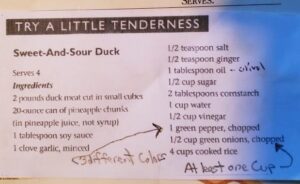 SERVES.
TRY A LITTLE TENDERNESS
Sweet-And-Sour Duck
Serves 4
Ingredients
2 pounds duck meat cut in small cubes
20-ounce can of pineapple chunks
(in pineapple juice, not syrup)
1 tablespoon soy sauce
1 clove garlic, minced
1/2 teaspoon salt
1/2 teaspoon ginger
1 tablespoon oil - olive
1/2 cup sugar
2 tablespoons cornstarch
1 cup water
1/2 cup vinegar
1 green pepper, chopped
1/2 cup green onions, chopped
4 cups cooked rice
Different Colors
At least one Cup